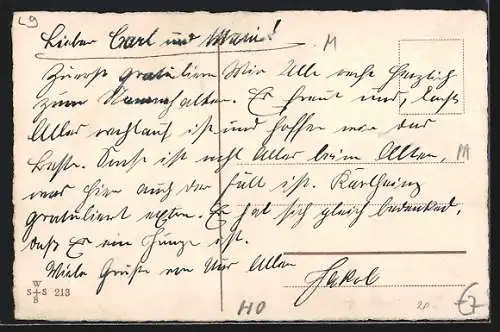 L9
Lieber Carl und Marie!
M
Zuerst gratulieren Wir Alle recht herzlich
zum Stammhalter. Er freut uns, dass
Alles wohlauf ist und hoffen nur das
Beste. Sonst ist noch Alles beim Alten,
M
was hier auch der Fall ist. Karlheinz
gratuliert extra. Er hat sich gleich bedanked,
dass Er ein Junge ist.
Viele Grüße von Uns Allen
Jakob
W
S S
B
213
HO